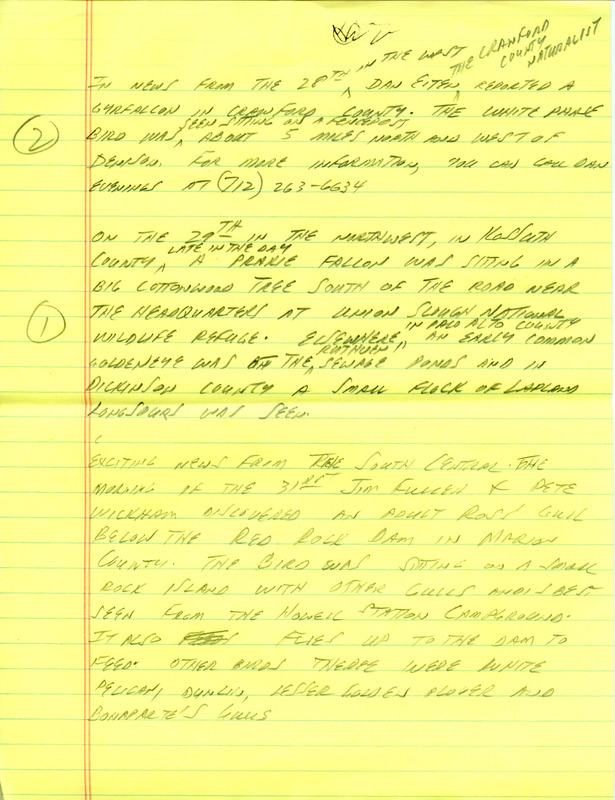 IN THE WEST THE CRAWFORD
COUNTY
NATURALIST
IN NEWS FROM THE 28TH ^ DAN EITEN ^ REPORTED A
GYRFALCON IN CRAWFORD COUNTY. THE WHITE PHASE
SEEN SITTING ON A FENCEPOST
② BIRD WAS ^ ABOUT 5 MILES NORTH AND WEST OF
DENISON. FOR MORE INFORMATION, YOU CAN CALL DAN
EVENINGS AT (712) 263-6634
ON THE 29TH IN THE NORTHWEST, IN KOSSUTH
LATE IN THE DAY
COUNTY ^ A PRAIRIE FALCON WAS SITING IN A
BIG COTTONWOOD TREE SOUTH OF THE ROAD NEAR
① THE HEADQUARTERS AT UNION SLOUGH NATIONAL
IN PALO ALTO COUNTY
WILDLIFE REFUGE. ELSEWHERE, ^ AN EARLY COMMON
RUTHVEN
GOLDENEYE WAS ON THE ^ SEWAGE PONDS AND IN
DICKINSON COUNTY A SMALL FLOCK OF LAPLAND
LONGSPURS WAS SEEN.
EXCITING NEWS FROM THE SOUTH CENTRAL. THE
MORNING OF THE 31ST JIM FULLER & PETE
WICKHAM DISCOVERED AN ADULT ROSS' GULL
BELOW THE RED ROCK DAM IN MARION
COUNTY. THE BIRD WAS SITTING ON A SMALL
ROCK ISLAND WITH OTHER GULLS AND IS BEST
SEEN FROM THE HOWELL STATION CAMPGROUND.
IT ALSO FLIES UP TO THE DAM TO
FEED. OTHER BIRDS THERE WERE WHITE
PELICAN, DUNLIN, LESSER GOLDEN PLOVER AND
BONAPARTE'S GULLS